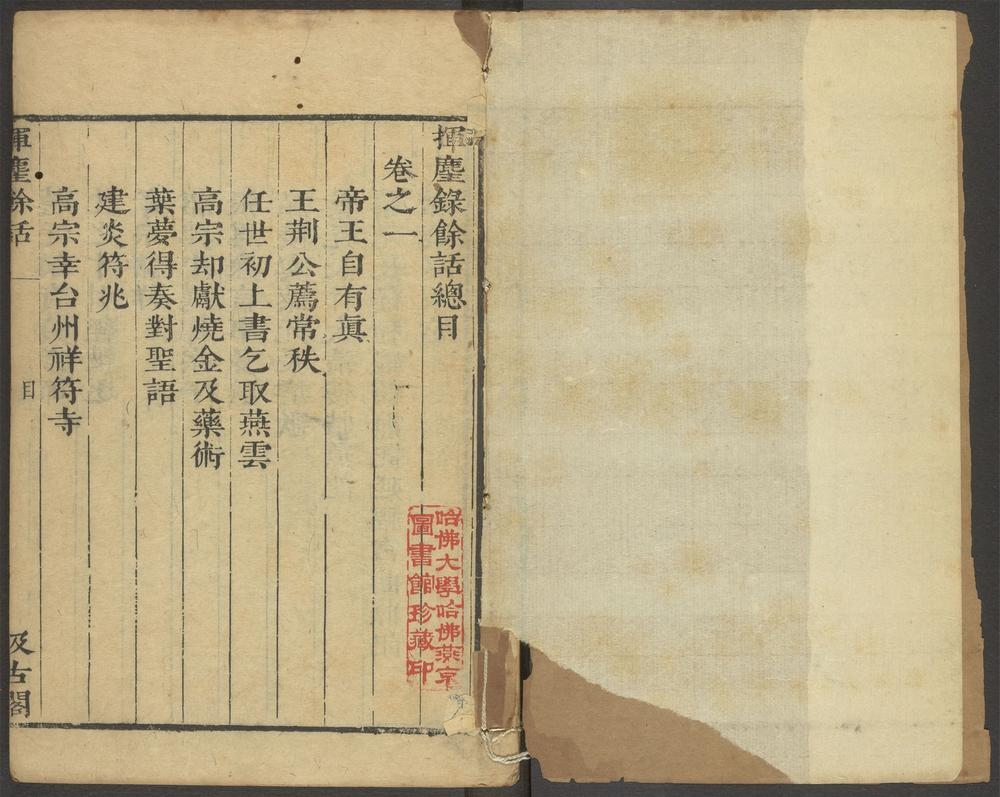 揮麈錄餘話總目
卷之一
帝王自有眞
王荆公薦常秩
任世初上書乞取燕雲
高宗却獻燒金及藥術
葉夢得奏對聖語
建炎符兆
高宗幸台州祥符寺
揮麈餘話
目
汲古閣
哈佛大學哈佛燕京
圖書館珍藏印